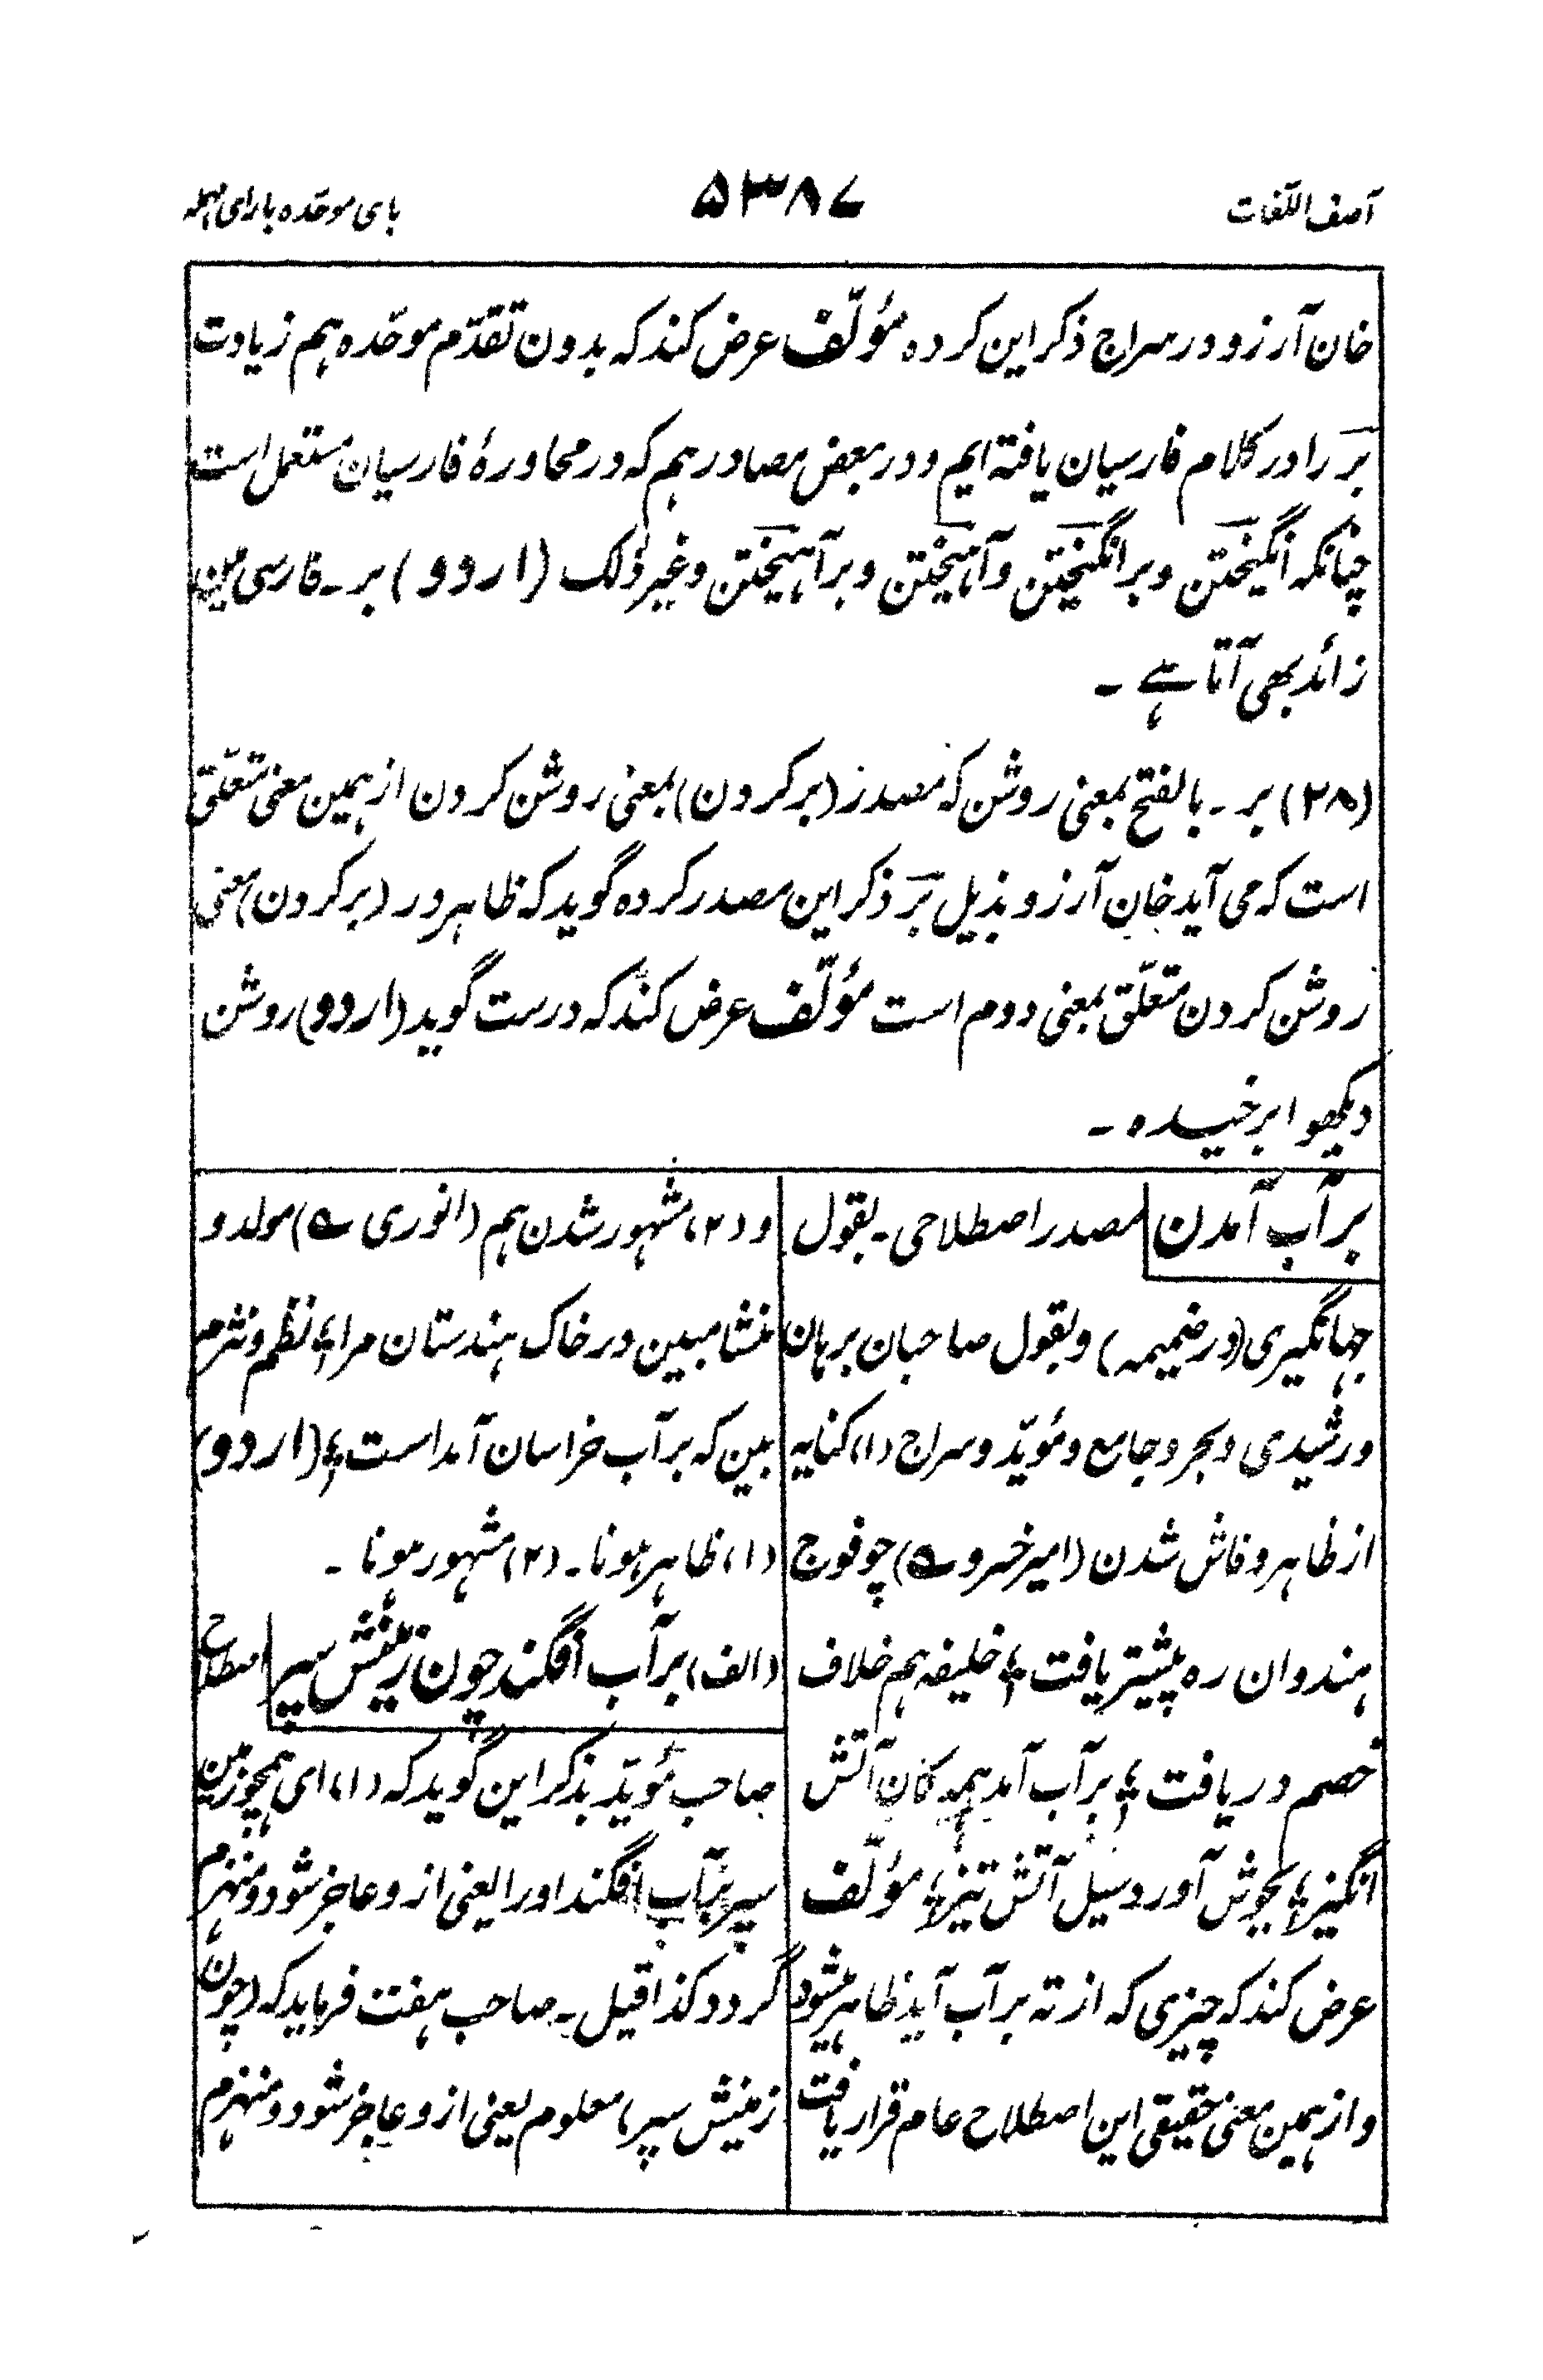 آصف اللّغات
۵۳۸۷
بای موحّده بارای مهمله
خان آرزو در سراج ذکر این کرده مؤلّف عرض کند که بدون تقدّم موحّده هم زیادت
بَر را در کلام فارسیان یافته ایم و در بعض مصادر هم که در محاورهٔ فارسیان مستعمل است
چنانکه انگیختن و برانگیختن و آهیختن و برآهیختن و غیر ذٰلک (اردو) بر۔ فارسی مین
زائد بھی آتا ہے ۔
(۲۸) بر۔ بالفتح بمعنی روشن که مصدر (بر کردن) بمعنی روشن کردن از همین معنی متعلّق
است که می آید خان آرزو بذیل بَر ذکر این مصدر کرده گوید که ظاہر در (بر کردن) معنی
روشن کردن متعلّق بمعنی دوم است مؤلّف عرض کند که درست گوید (اردو) روشن
دیکھو ابر خیسدہ ۔
بر آب آمدن مصدر اصطلاحی۔ بقول
جہانگیری (در ضمیمہ) و بقول صاحبان برہان
و رشیدی و بحر و جامع و مؤیّد و سراج (۱) کنایہ
از ظاہر و فاش شدن (امیر خسرو ؎) چو فوج
ہندوان رہ پیشتر یافت ؛ خلیفہ ہم خلاف
خصم دریافت ؛ بر آب آمد ہمہ کان آتش
انگیز ؛ بجوش آورد سیل آتش تیز ؛ مؤلّف
عرض کند که چیزی که از ته بر آب آید ظاہر میشود
و از ہمین معنی حقیقی این اصطلاح عام قرار یافت
و (۲) مشہور شدن ہم (انوری ؎) مولد و
منشا مبین در خاک ہندستان مرا ؛ نظم و نثرم
بین که بر آب خراسان آمد است ؛ (اردو)
(۱) ظاہر ہونا۔ (۲) مشہور ہونا ۔
(الف) بر آب افگند چون زمینش سپر اصطلاح
صاحب مؤیّد بذکر این گوید که (۱) ای ہمچو زمین
سپر بر آب افگند او را یعنی ازو عاجز شود و منہزم
گردد کذا قیل۔ صاحب ہفت فرماید که (چون
زمینش سپر) معلوم یعنی ازو عاجز شود و منہزم